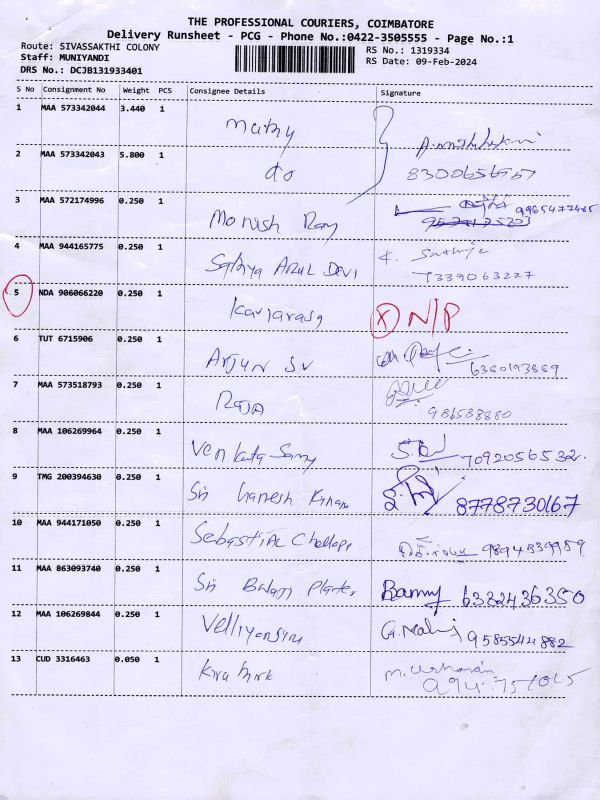 THE PROFESSIONAL COURIERS, COIMBATORE
Delivery Runsheet - PCG - Phone No.:0422-3505555 - Page No.:1
Route: SIVASSAKTHI COLONY RS No.: 1319334
Staff: MUNIYANDI RS Date: 09-Feb-2024
DRS No.: DCJB131933401
S No Consignment No Weight PCS Consignee Details Signature
1 MAA 573342044 3.440 1
2 MAA 573342043 5.800 1 do
8300656567
3 MAA 572174996 0.250 1 Monish Raj 9965477465
4 MAA 944165775 0.250 1 Sathya Arul Devi
7339063227
5 NDA 906066220 0.250 1 Kaviarasu X N/P
6 TUT 6715906 0.250 1 Arjun SV 6380193889
7 MAA 573518793 0.250 1 Raja
986588380
8 MAA 106269964 0.250 1 Venkata Samy 7092056532.
9 TMG 200394630 0.250 1 Sri Ganesh Kumar 8778730167
10 MAA 944171050 0.250 1
11 MAA 863093740 0.250 1 Sri Balaji 6382436350
12 MAA 106269844 0.250 1 G. Mahi 9585544882
13 CUD 3316463 0.050 1